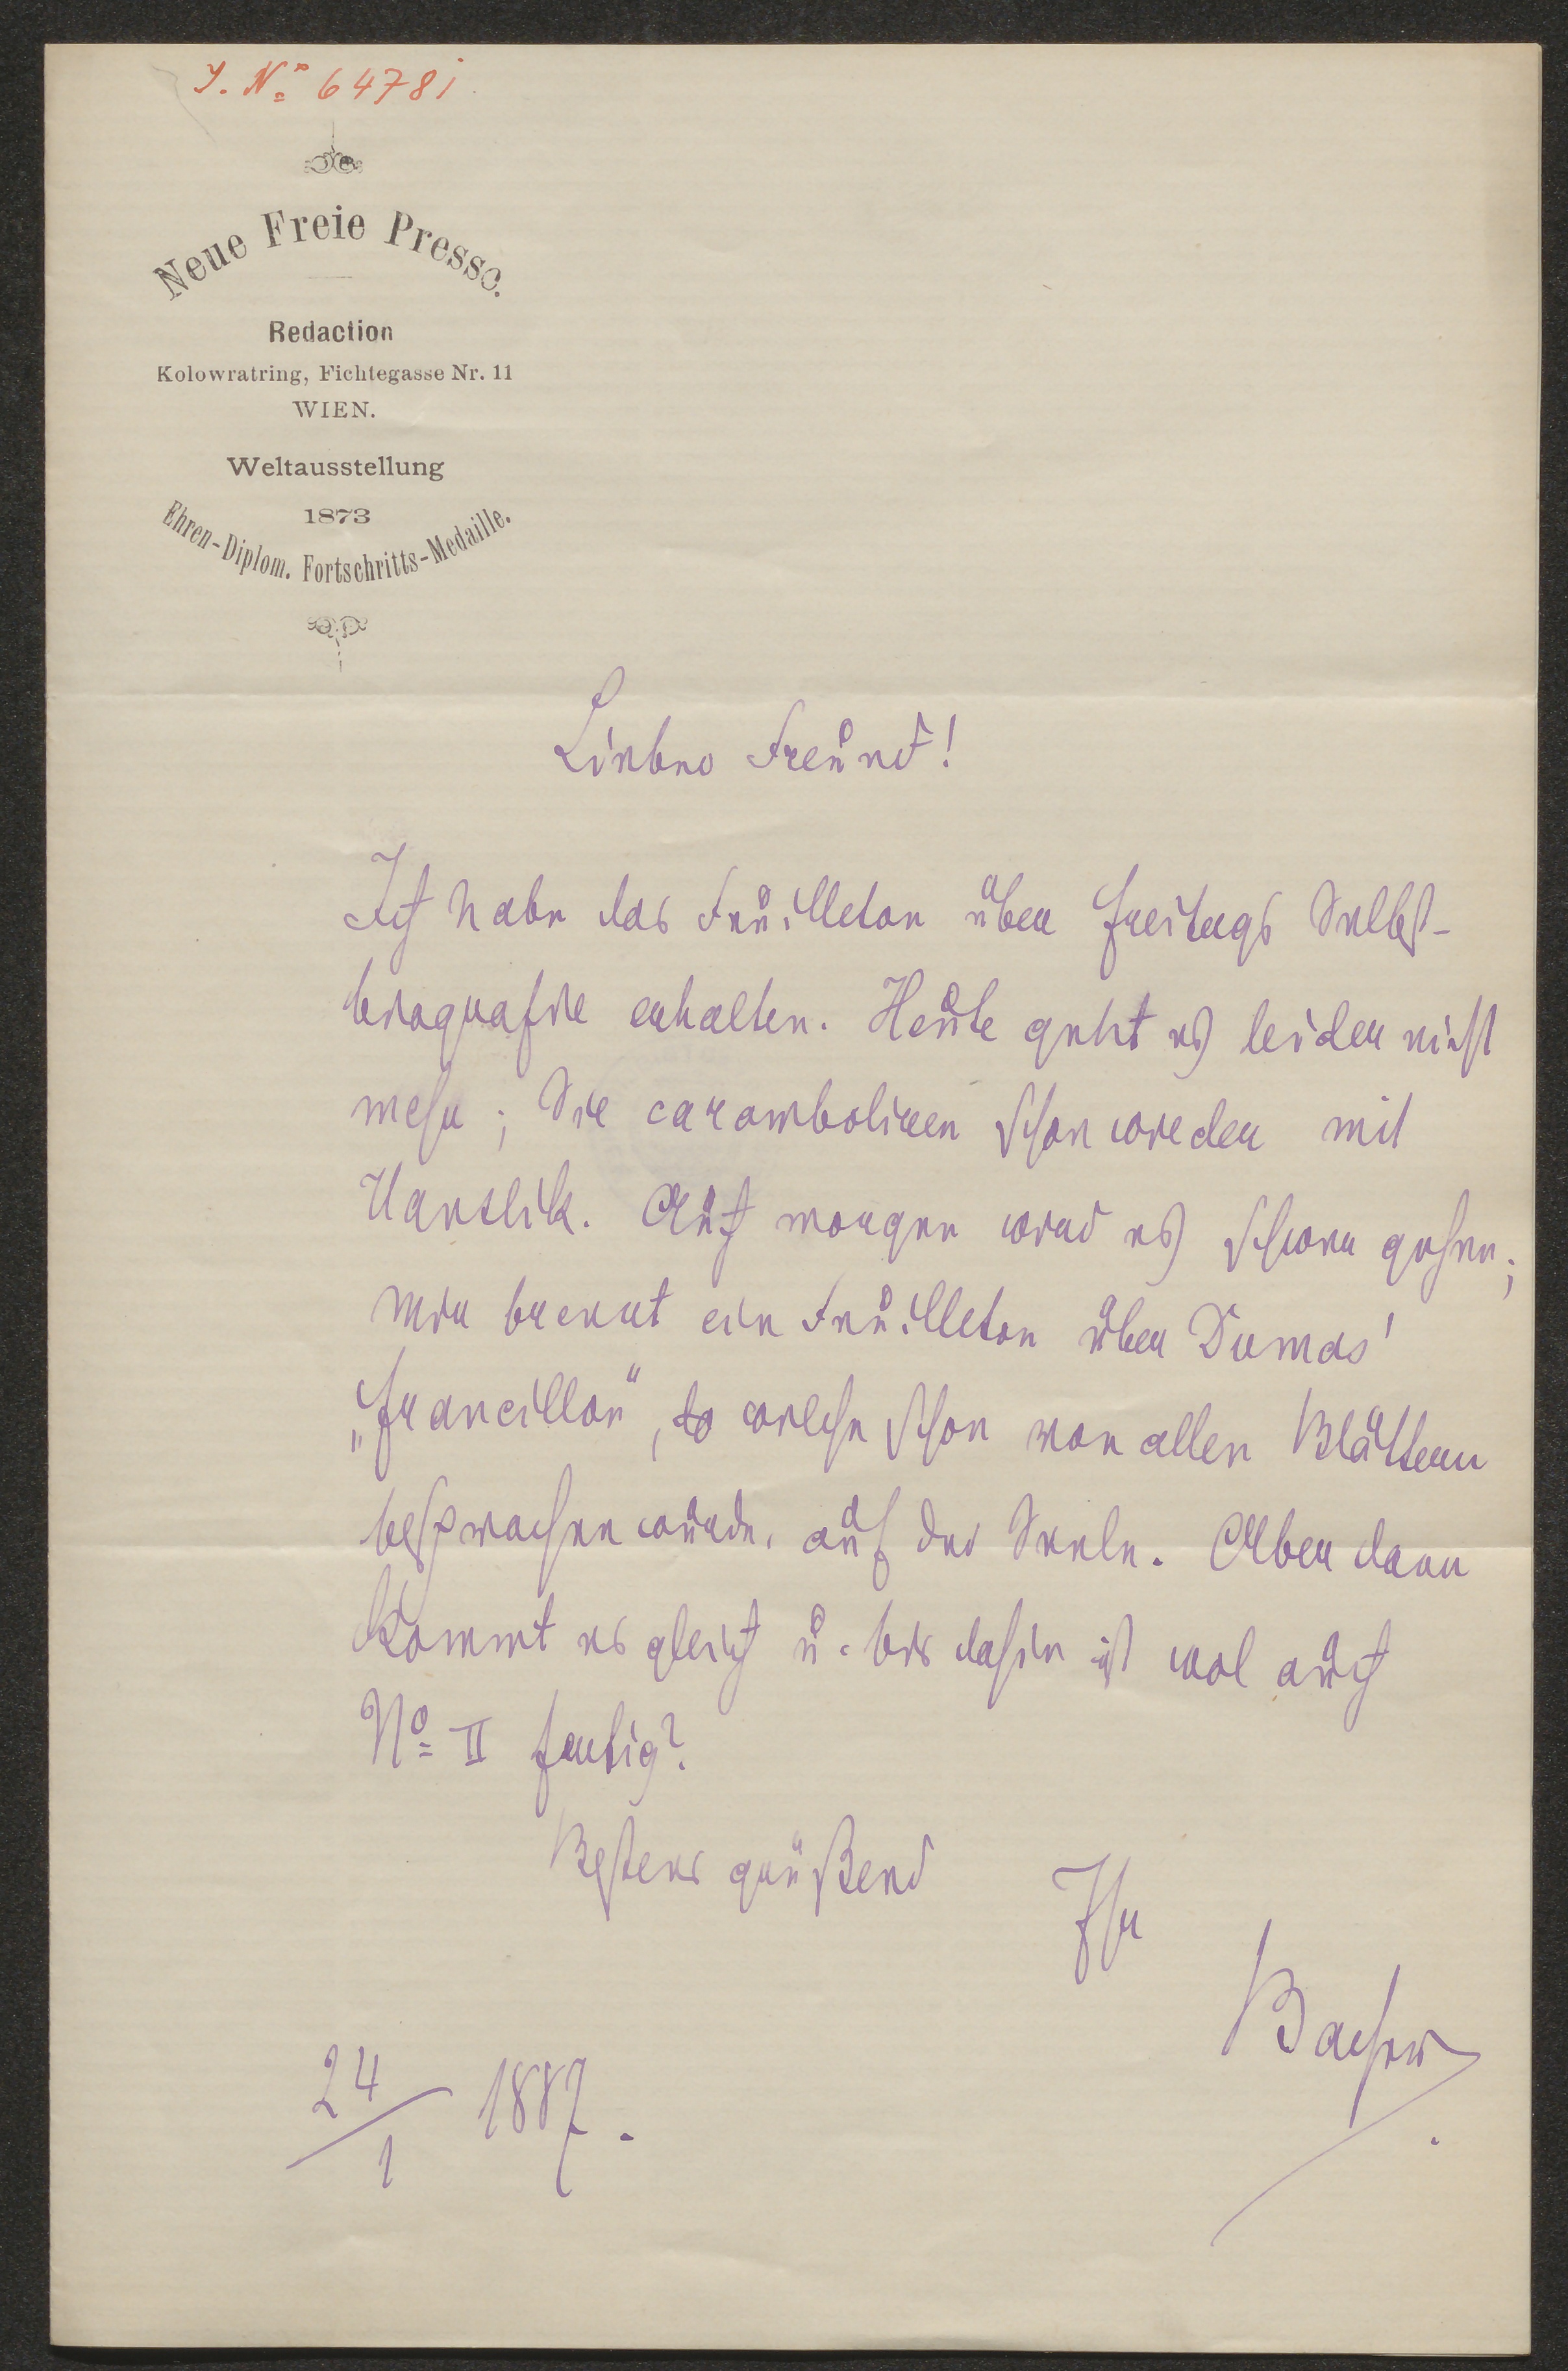 J. No 64781
Neue Freie Presse.
Redaction
Kolowratring, Fichtegasse Nr. 11
WIEN.
Weltausstellung
1873
Ehren-Diplom. Fortschritts-Medaille.
Lieber Freund!
Ich habe das Feuilleton über Freitags Selbst-
biografie erhalten. Heute geht es leider nicht
mehr; Sie caramboliren schon wieder mit
Hanslik. Auch morgen wird es schwer gehen;
mir brennt ein Feuilleton über Dumas'
„Francillon", welche schon von allen Blättern
besprochen wurde, auf der Seele. Aber dann
kommt es gleich u. bis dahin ist wol auch
No II fertig?
Bestens grüßend
Ihr
Bacher
24/1 1887.